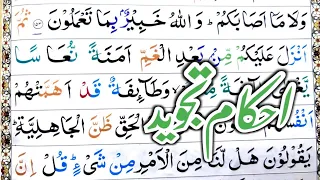 وَلَا مَاۤ اَصَابَكُمْ ؕ وَاللّٰهُ خَبِيْرٌۢ بِمَا تَعْمَلُوْنَ
اَنْزَلَ عَلَيْكُمْ مِّنْۢ بَعْدِ الْغَمِّ اَمَنَةً نُّعَاسًا
وَطَآئِفَةٌ قَدْ اَهَمَّتْهُمْ
اَنْفُسُهُمْ الْحَقِّ ظَنَّ الْجَاهِلِيَّةِ ؕ
يَقُوْلُوْنَ هَلْ لَّنَا مِنَ الْاَمْرِ مِنْ شَیْءٍ ؕ قُلْ اِنَّ
احکام تجوید